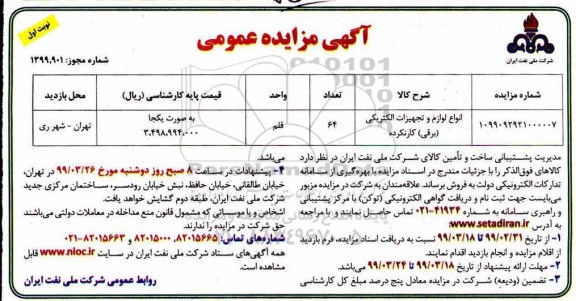 نوبت اول
آگهی مزایده عمومی
شرکت ملی نفت ایران
شماره مجوز: ۱۳۹۹.۹۰۱
شماره مزایده | شرح کالا | تعداد | واحد | قیمت پایه کارشناسی (ریال) | محل بازدید
۱۰۹۹۰۹۲۹۲۱۰۰۰۰۰۷ | انواع لوازم و تجهیزات الکتریکی (برقی) کارنکرده | ۶۴ | قلم | به صورت یکجا ۳.۴۹۸.۹۹۴.۰۰۰ | تهران - شهر ری
مدیریت پشتیبانی ساخت و تأمین کالای شرکت ملی نفت ایران در نظر دارد
کالاهای فوق‌الذکر را با جزئیات مندرج در اسناد مزایده با بهره‌گیری از سامانه
تدارکات الکترونیکی دولت به فروش برساند. علاقه‌مندان به شرکت در مزایده مزبور
می‌بایست جهت ثبت نام و دریافت گواهی الکترونیکی (توکن) با مرکز پشتیبانی
و راهبری سامانه به شماره ۴۱۹۳۴-۰۲۱ تماس حاصل نمایند و با مراجعه
به آدرس www.setadiran.ir:
۱- از تاریخ ۹۹/۰۲/۳۱ تا ۹۹/۰۳/۱۸ نسبت به دریافت اسناد مزایده، فرم بازدید
از اقلام مزایده و انجام بازدید اقدام نمایند.
۲- مهلت ارائه پیشنهاد از تاریخ ۹۹/۰۳/۱۸ تا ۹۹/۰۳/۲۴ می‌باشد.
۳- تضمین (ودیعه) شرکت در مزایده معادل پنج درصد مبلغ کل کارشناسی
می‌باشد.
۴- پیشنهادات در ساعت ۸ صبح روز دوشنبه مورخ ۹۹/۰۳/۲۶ در تهران،
خیابان طالقانی، خیابان حافظ، نبش خیابان رودسر، ساختمان مرکزی جدید
شرکت ملی نفت ایران، طبقه دوم گشایش خواهد یافت.
اشخاص و یا موسساتی که مشمول قانون منع مداخله در معاملات دولتی می‌باشند
حق شرکت در مزایده را ندارند.
شماره‌های تماس: ۸۲۰۱۵۶۶۵، ۸۲۰۱۵۰۰۰ و ۸۲۰۱۵۶۶۳-۰۲۱
همه آگهی‌های ستاد شرکت ملی نفت ایران در سایت www.nioc.ir قابل
مشاهده است.
روابط عمومی شرکت ملی نفت ایران